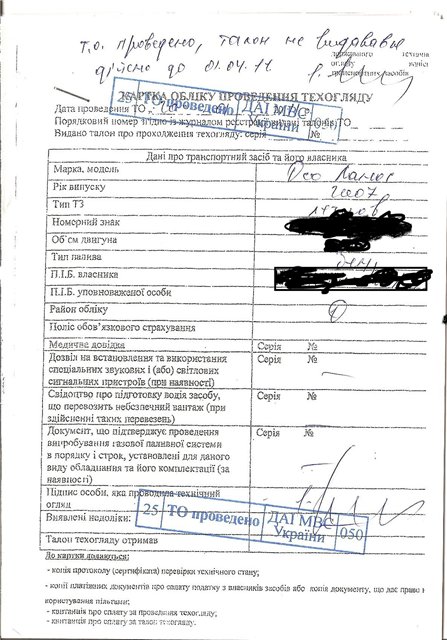 Т.О. проведено, талон не видавався
дійсно до 01.04.11
КАРТКА ОБЛІКУ ПРОВЕДЕННЯ ТЕХОГЛЯДУ
Дата проведення ТО
Порядковий номер згідно із журналом реєстрації видачі талонів ТО
Видано талон про проходження техогляду: серія №
25 ТО проведено ДАІ МВС України
Дані про транспортний засіб та його власника
Марка, модель Део Ланос
Рік випуску 2007
Тип ТЗ
Номерний знак
Об'єм двигуна
Тип палива
П.І.Б. власника
П.І.Б. уповноваженої особи
Район обліку
Поліс обов'язкового страхування
Медична довідка Серія №
Дозвіл на встановлення та використання Серія №
спеціальних звукових і (або) світлових
сигнальних пристроїв (при наявності)
Свідоцтво про підготовку водія засобу, Серія №
що перевозить небезпечний вантаж (при
здійсненні таких перевезень)
Документ, що підтверджує проведення Серія №
випробування газової паливної системи
в порядку і строк, установлені для даного
виду обладнання та його комплектації (за
наявності)
Підпис особи, яка проводила технічний
огляд
Виявлені недоліки:
25 ТО проведено ДАІ МВС України 050
Талон техогляду отримав
До картки додаються:
- копія протоколу (сертифіката) перевірки технічного стану;
- копії платіжних документів про сплату податку з власників засобів або копія документу, що дає право
користування пільгами;
- квитанція про сплату за проведення техогляду;
- квитанція про сплату за талон техогляду.